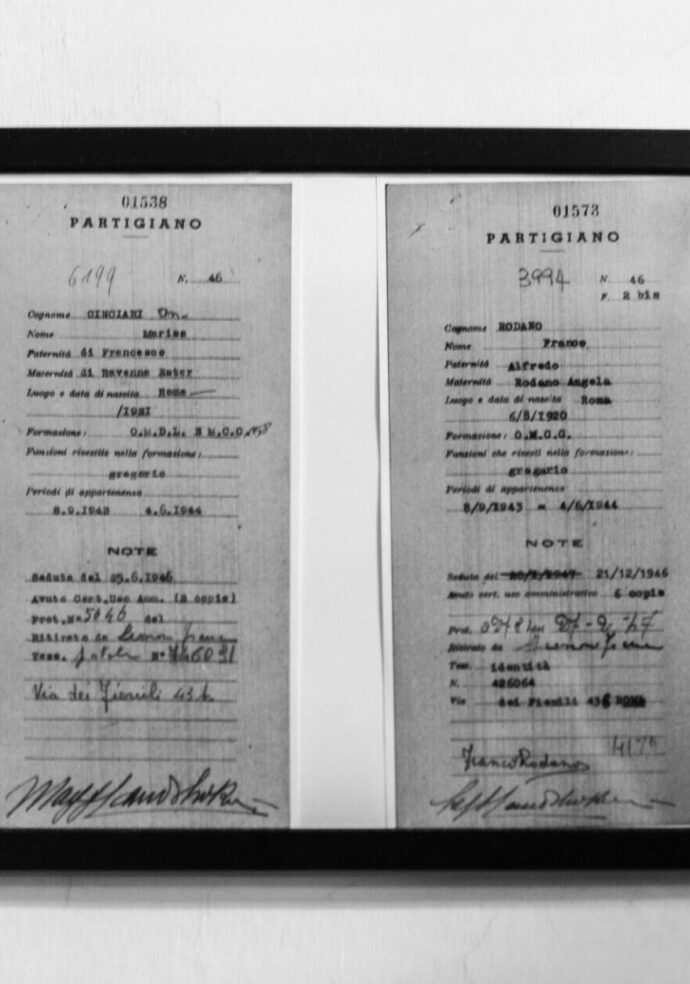 01538
PARTIGIANO
6199 N. 46
Cognome CINCIARI On.
Nome Marisa
Paternità di Francesco
Maternità di Ravenna Ester
Luogo e data di nascita Roma
/1921
Formazione: O.M.D.L. E M.C.C.
Funzioni rivestite nella formazione:
gregario
Periodi di appartenenza
8.9.1943 4.6.1944
NOTE
Seduta del 25.6.1946
Avuto Cert.Uso Amm. (2 copie)
Prot.N° 5646 del
Ritirato da
Tess. N°
Via dei Fienili 43
01573
PARTIGIANO
3994 N. 46
F. 2 bis
Cognome RODANO
Nome Franco
Paternità Alfredo
Maternità Rodano Angela
Luogo e data di nascita Roma
6/8/1920
Formazione: O.M.C.C.
Funzioni che rivestì nella formazione:
gregario
Periodi di appartenenza
8/9/1943 = 4/6/1944
NOTE
Seduta del 21/12/1946
Avuto cert. uso amministrativo 6 copie
Prot. del
Ritirato da
Tess. identità
N. 426064
Via dei Fienili 43 ROMA
Franco Rodano